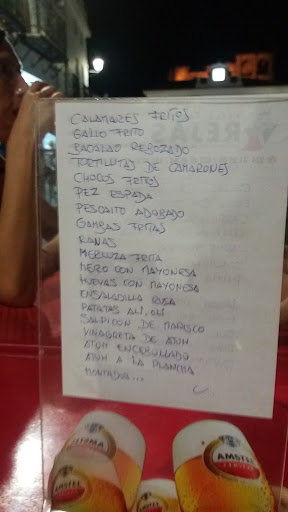 CALAMARES FRITOS
GALLO FRITO
BACALAO REBOZADO
TORTILLITAS DE CAMARONES
CHOCOS FRITOS
PEZ ESPADA
PESCAITO ADOBADO
GAMBAS FRITAS
RANAS
MERLUZA FRITA
MERO CON MAYONESA
HUEVAS CON MAYONESA
ENSALADILLA RUSA
PATATAS ALI-OLI
SALPICON DE MARISCO
VINAGRETA DE ATUN
ATUN ENCEBOLLADO
ATUN A LA PLANCHA
MONTADIA...
REJAS
AMSTEL
AMSTEL